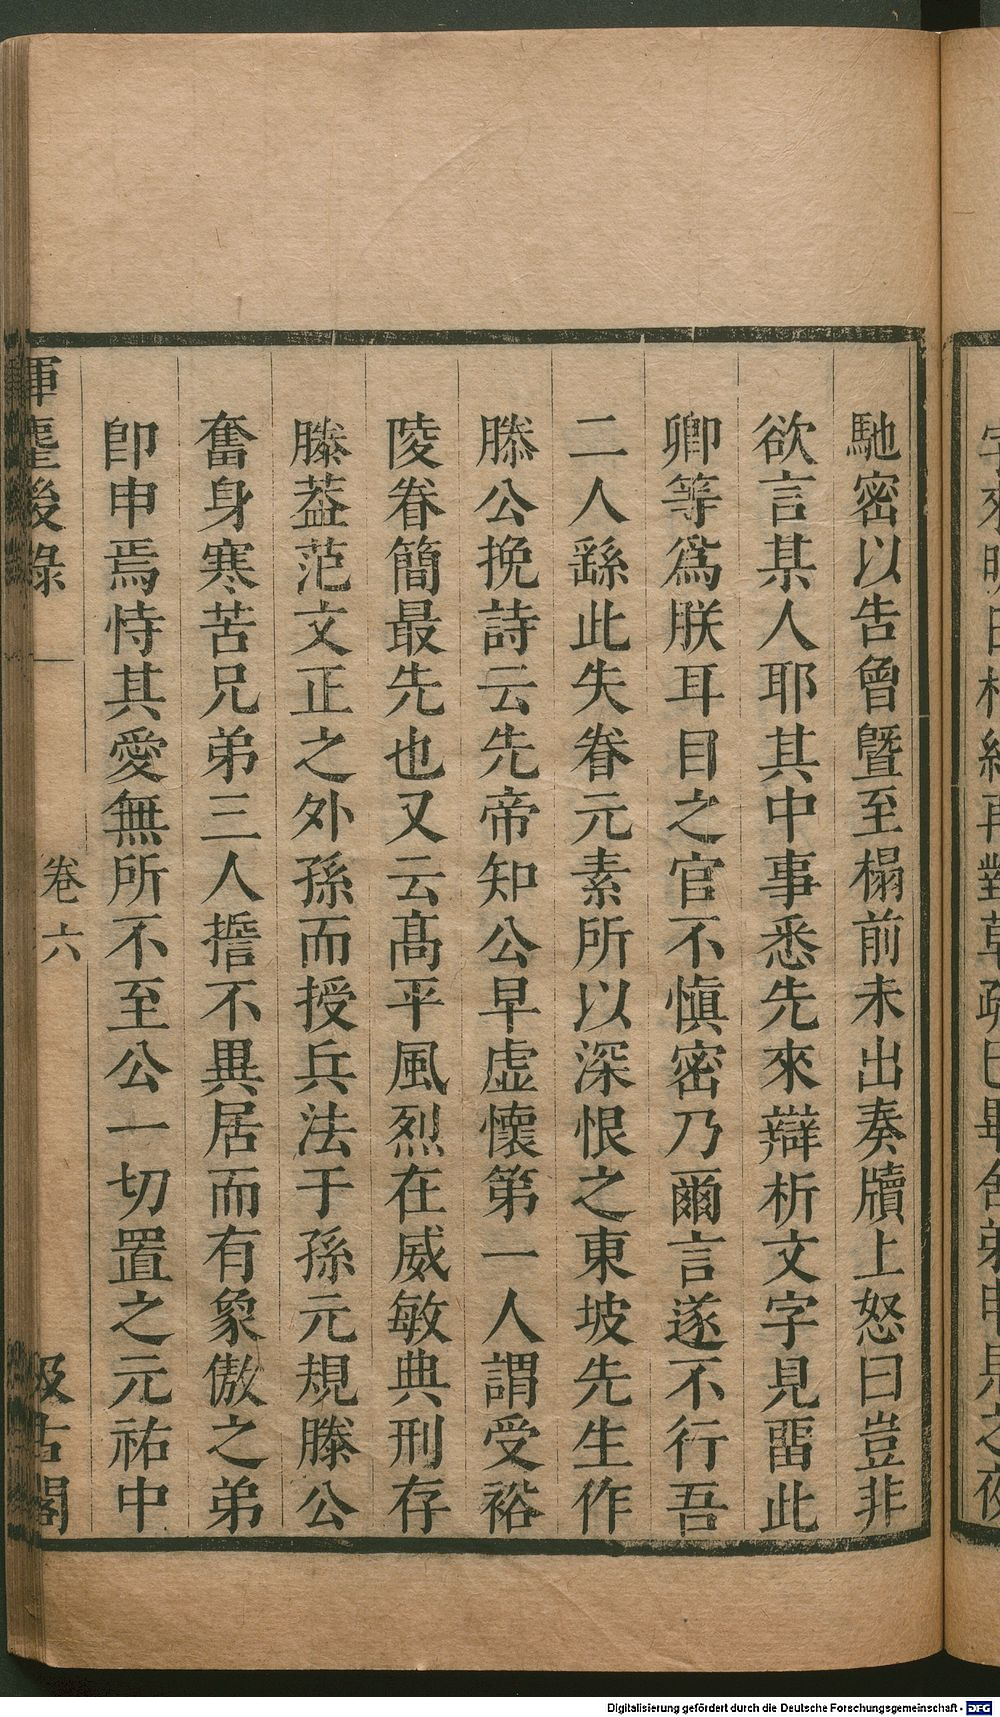 馳密以告曾曁至榻前未出奏牘上怒曰豈非
欲言某人耶其中事悉先來辯析文字見畱此
卿等爲朕耳目之官不愼密乃爾言遂不行吾
二人繇此失眷元素所以深恨之東坡先生作
滕公挽詩云先帝知公早虛懷第一人謂受裕
陵眷簡最先也又云髙平風烈在威敏典刑存
滕葢范文正之外孫而授兵法于孫元規滕公
奮身寒苦兄弟三人誓不異居而有象傲之弟
卽申焉恃其愛無所不至公一切置之元祐中
揮麈後錄
卷六
汲古閣
Digitalisierung gefördert durch die Deutsche Forschungsgemeinschaft - DFG